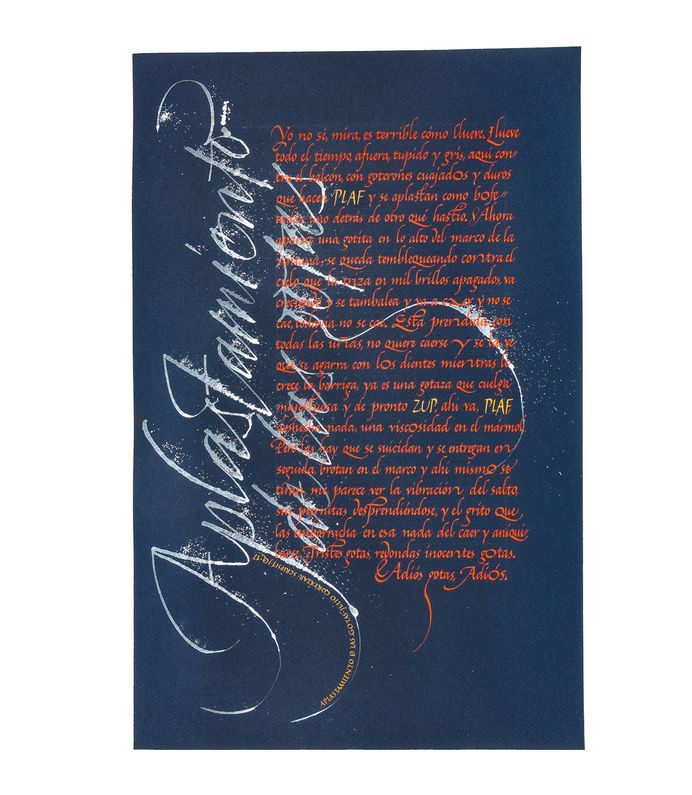 Aplastamiento
de las gotas
Yo no sé, mira, es terrible cómo llueve. Llueve
todo el tiempo, afuera, tupido y gris, aquí con-
tra el balcón, con goterones cuajados y duros
que hacen PLAF y se aplastan como bofe-
tadas uno detrás de otro qué hastío. Ahora
aparece una gotita en lo alto del marco de la
ventana, se queda temblequeando contra el
cielo que la triza en mil brillos apagados, va
creciendo y se tambalea y va a caer y no se
cae, todavía no se cae. Está prendida con
todas las uñas, no quiere caerse y se la ve
que se agarra con los dientes mientras le
crece la barriga, ya es una gotaza que cuelga
majestuosa y de pronto ZUP, ahí va, PLAF
deshecha, nada, una viscosidad en el mármol.
Pero las hay que se suicidan y se entregan en
seguida, brotan en el marco y ahí mismo se
tiran, me parece ver la vibración del salto,
sus piernitas desprendiéndose, y el grito que
las emborracha en esa nada del caer y aniqui-
larse. Tristes gotas, redondas inocentes gotas.
Adiós gotas, Adiós.
APLASTAMIENTO D LAS GOTAS/JULIO CORTÁZAR